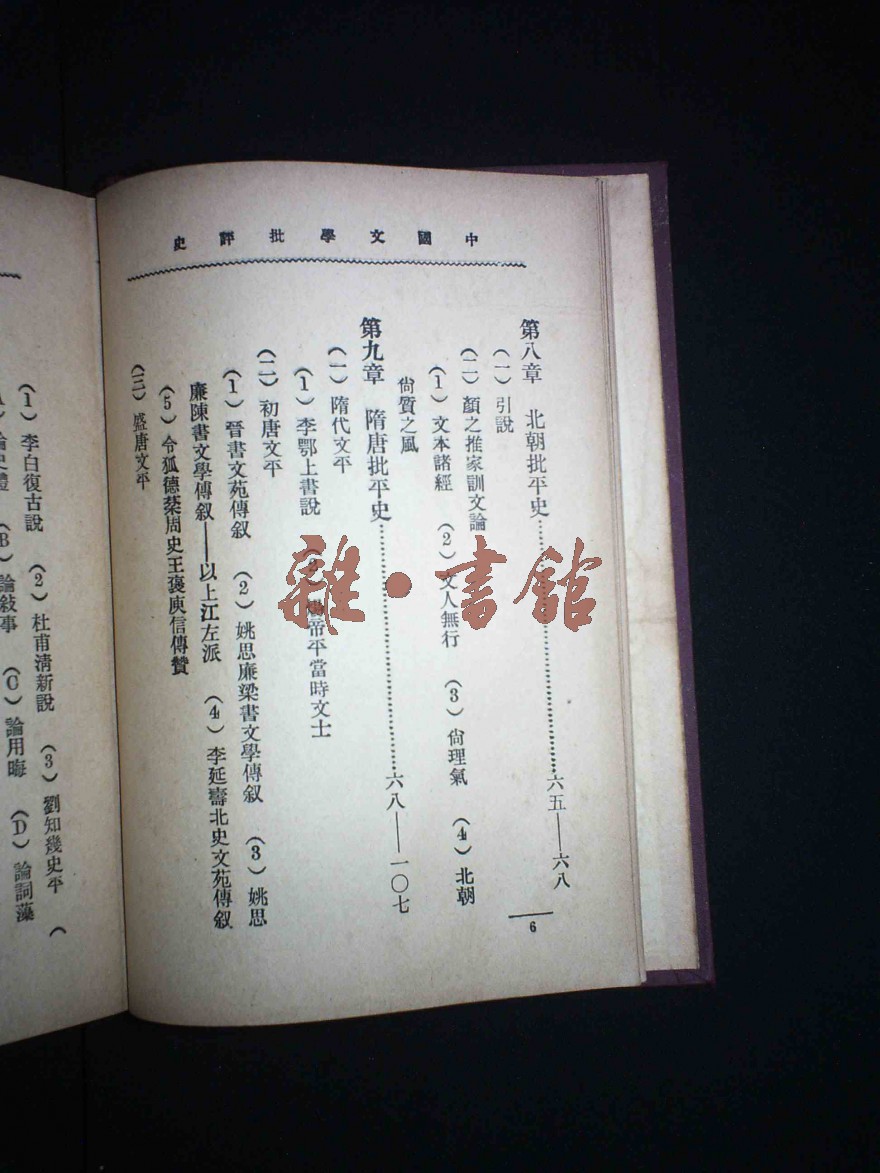 中國文學批評史
第八章　北朝批平史……六五——六八
（一）引說
（二）顏之推家訓文論
（1）文本諸經　（2）文人無行　（3）尙理氣　（4）北朝
尙質之風
第九章　隋唐批平史……六八——一〇七
（一）隋代文平
（1）李鄂上書說　（2）煬帝平當時文士
（二）初唐文平
（1）晉書文苑傳叙　（2）姚思廉梁書文學傳叙　（3）姚思
廉陳書文學傳叙——以上江左派　（4）李延壽北史文苑傳叙
（5）令狐德棻周史王褒庾信傳贊
（三）盛唐文平
6
（1）李白復古說　（2）杜甫淸新說　（3）劉知幾史平　（
A）論史體　（B）論敍事　（C）論用晦　（D）論詞藻
雜·書館